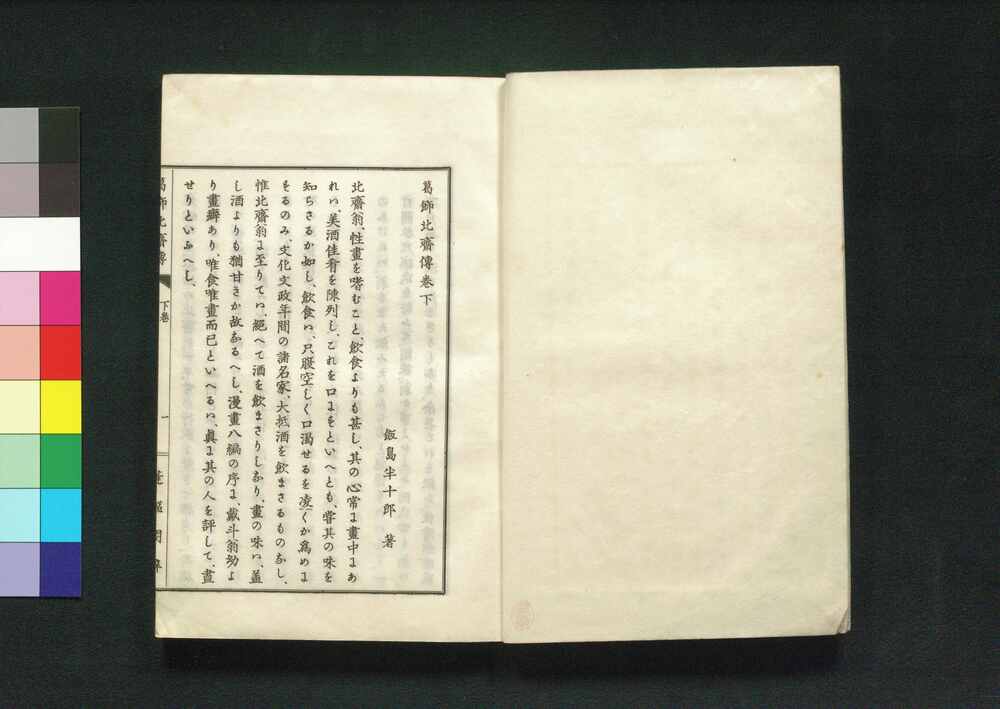 葛飾北齋傳卷下
飯島半十郎 著
北齋翁、性畫を嗜むこと、飲食よりも甚し、其の心常に畫中にあ
れバ、美酒佳肴を陳列し、これを口にをといへとも、嘗其の味を
知らさるか如し、飲食ハ、只腹空しく口渇せるを凌くか爲めに
をるのみ、文化文政年間の諸名家、大抵酒を飲まさるものなし、
惟北齋翁に至りてハ、絕へて酒を飲まさりしなり、畫の味ハ、蓋
し酒よりも猶甘きか故なるへし、漫畫八編の序に、戴斗翁幼よ
り畫癖あり、唯食唯畫而已といへるハ、眞に其の人を評して、盡
せりといふへし、
葛飾北齋傳
下卷
一